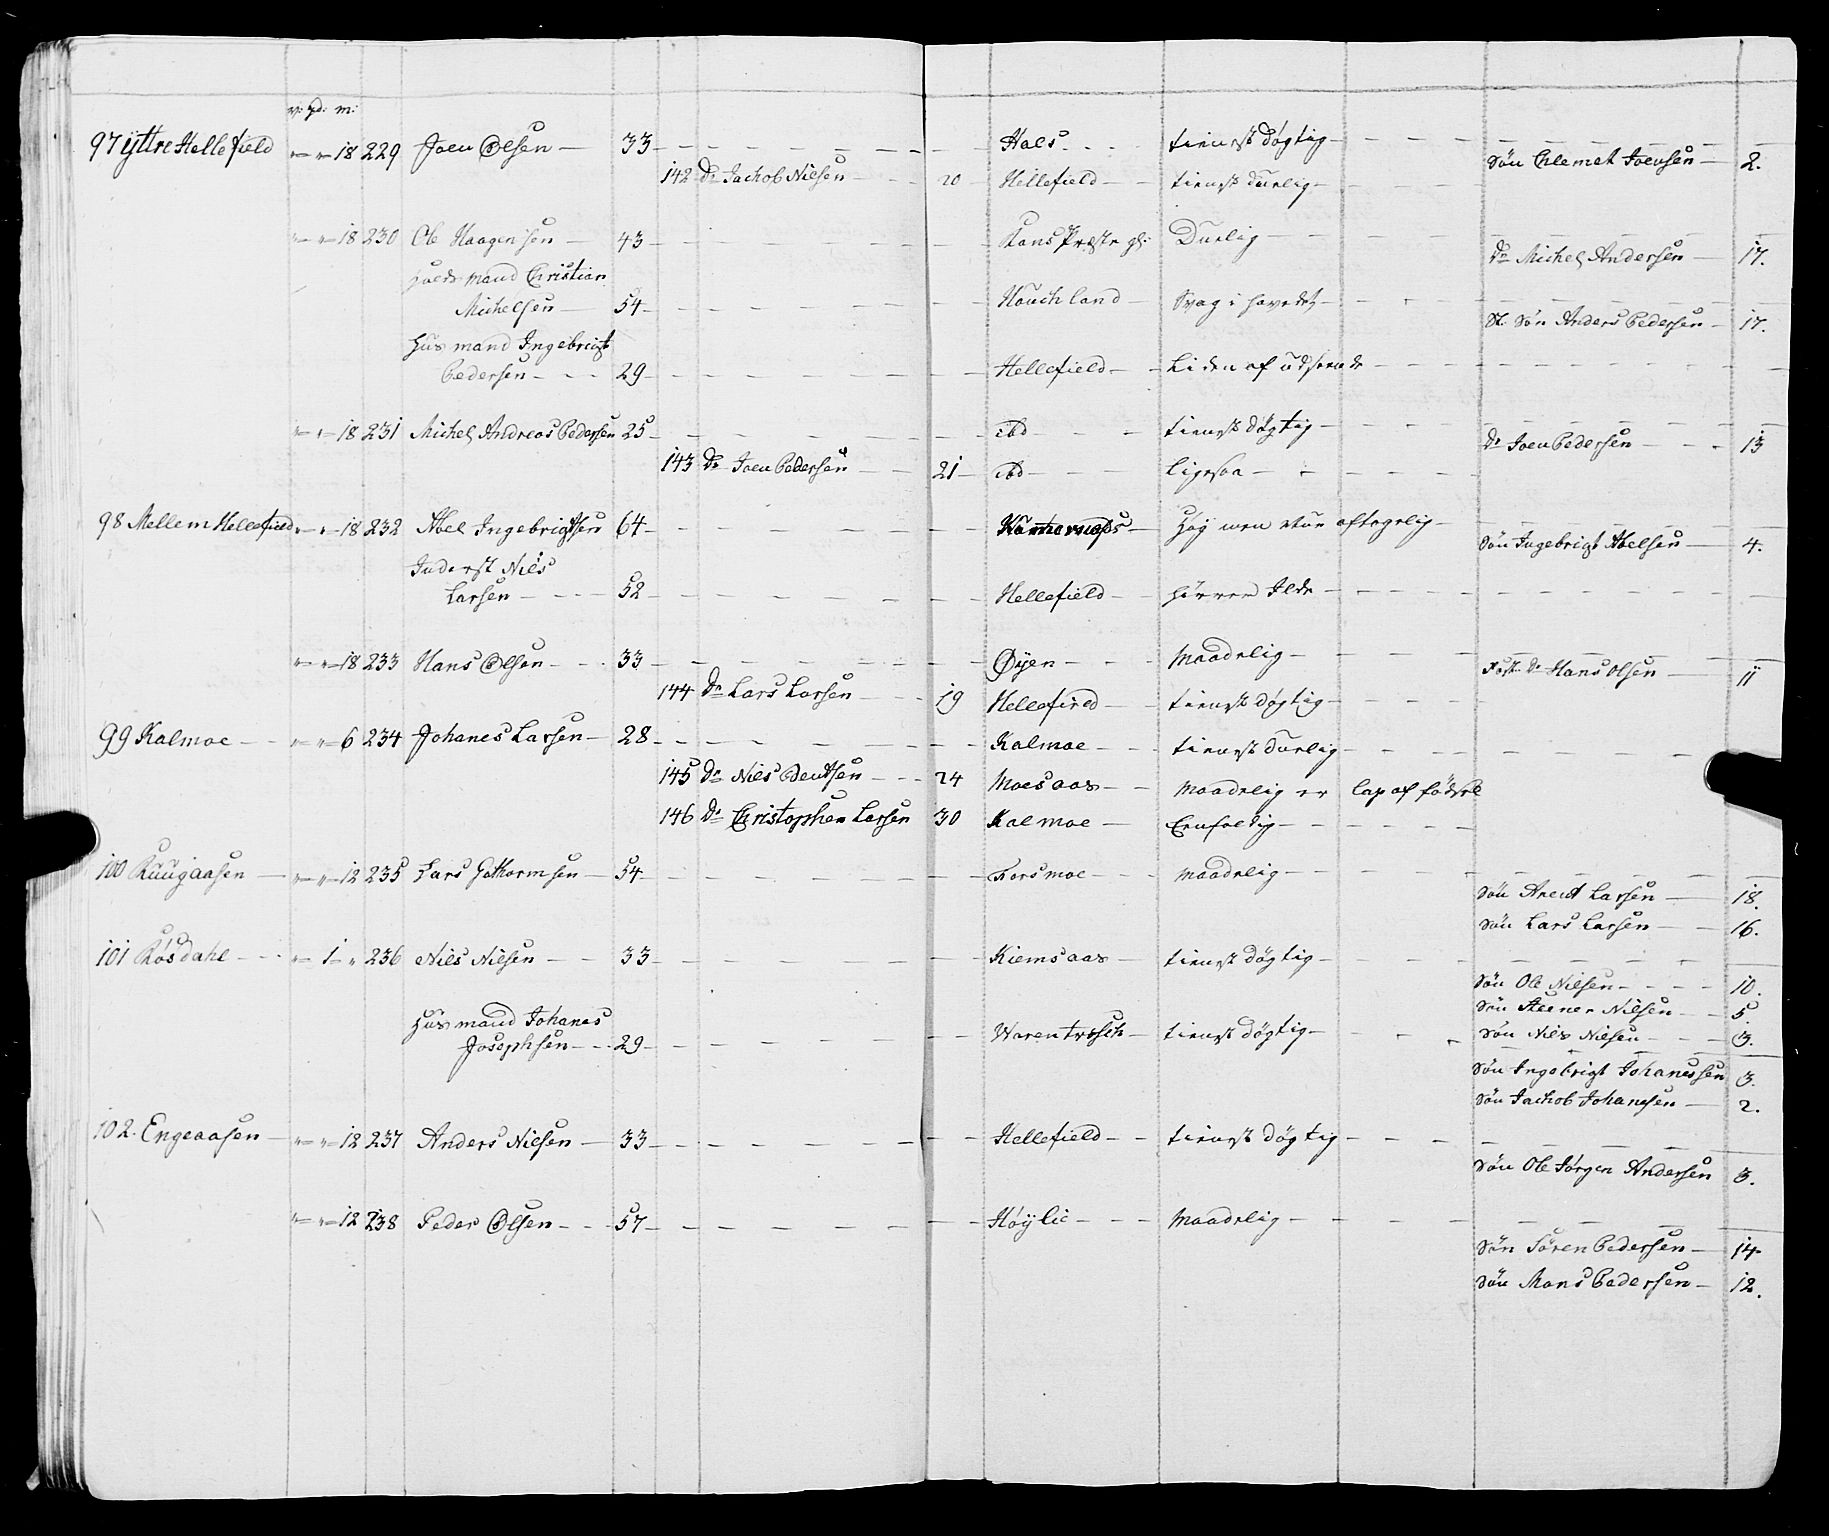 v: pd: m:
97 Ÿttre Hellefield " " 18 229 Joen Olsen 33 Hals tienst Døgtig
Søn Clemet Joensen 2.
142 Dr Jachob Nielsen 20 Hellefield tienst Duelig
" " 18 230 Ole Haagensen 43 Præste gl: Duelig
Dr Michel Andersen 17.
Huus mand Christian
Michelsen 54 Houchland Svag i hovedet
St. Søn Anders Pedersen 17.
Huus mand Ingebrigt
Pedersen 29 Hellefield Liden af udseende
" " 18 231 Michel Andreas Pedersen 25 ibd tienst Døgtig
Dr Joen Pedersen 13
143 Dr Joen Pedersen 21 ibd Ligesaa
98 Mellem Hellefield " " 18 232 Abel Ingebrigtsen 64 Høy men aftagelig
Søn Ingebrigt Abelsen 4.
Inderst Niels
Larsen 52 Hellefield hörrer Ilde
" " 18 233 Hans Olsen 33 Øyen Maadelig
Fost. Dr Hans Olsen 11
144 Dr Lars Larsen 19 Hellefired tienst Døgtig
99 Kalmoe " " 6 234 Johanes Larsen 28 Kalmoe tienst Duelig
145 Dr Niels Bentsen 24 Moesaas Maadelig er Lap af födsel
146 Dr Christopher Larsen 30 Kalmoe Eenfoldig
100 Ruugaasen " " 12 235 Lars Guthormsen 54 Forsmoe Maadelig
Søn Arent Larsen 18.
Søn Lars Larsen 16.
101 Røsdahl " 1 " 236 Niels Nielsen 33 Kiemsaas tienst Døgtig
Søn Ole Nielsen 10.
Søn Steener Nielsen 5
Huus mand Johanes
Josephsen 29 Warentresch tienst Døgtig
Søn Niels Nielsen 3.
Søn Ingebrigt Johanessen 3.
Søn Jachob Johanesen 2.
102. Engeaasen " " 12 237 Anders Nielsen 33 Hellefield tienst Døgtig
Søn Ole Jørgen Andersen 3.
" " 12 238 Peder Olsen 57 Høylie Maadelig
Søn Sören Pedersen 14
Søn Mons Pedersen 12.